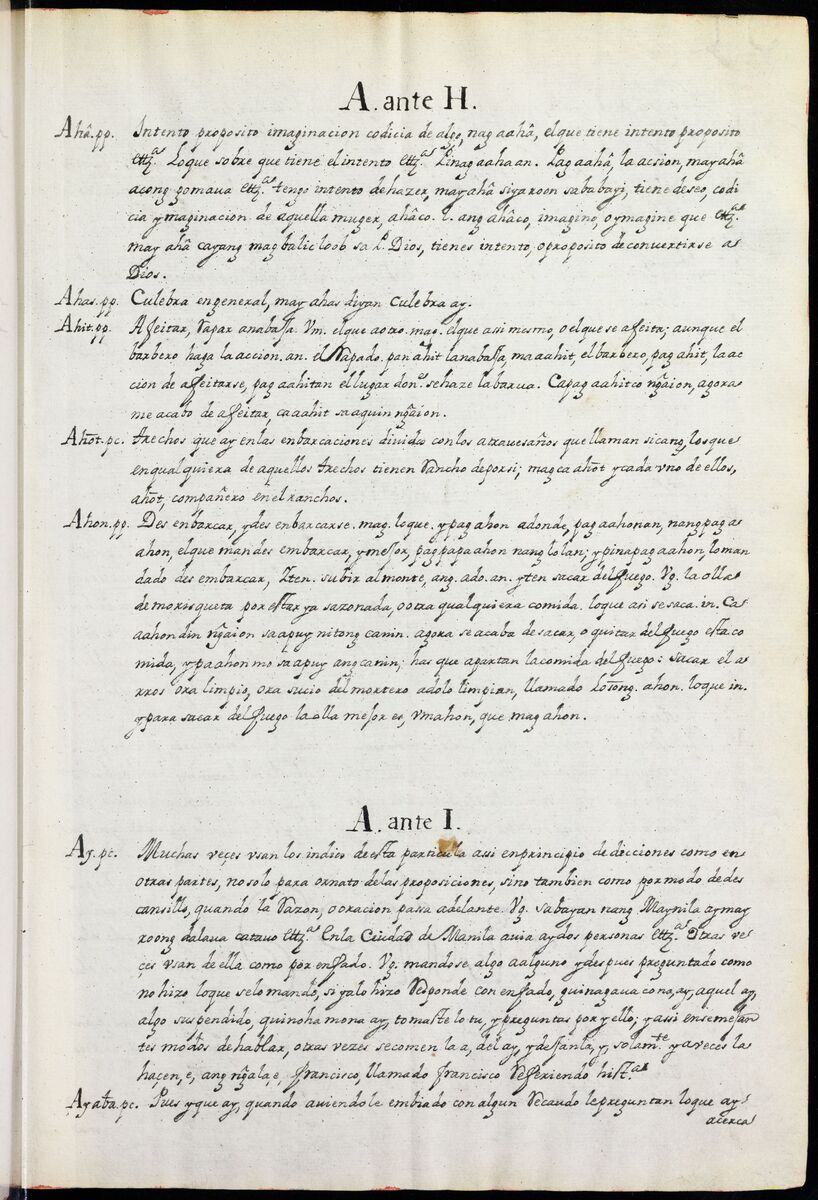 A. ante H.
Ahâ. pp. Intento proposito imaginacion codicia de algo, nag aahâ, el que tiene intento proposito
ettz.ª Loque sobre que tiene el intento ettz.ª Pinagaahaan. Pag aahâ, la acsion, may ahâ
acong gomaua ettz.ª tengo intento dehazer, may ahâ siyaroon sababayi, tiene deseo, codi
cia y maginacion de aquella muger, ahâco. l. ang ahâco, imagino, oymagine que ettz.ª
may ahâ cayang magbalic loob sa P. Dios, tienes intento, oproposito deconuertirse a
Dios.
Ahas. pp. Culebra engeneral, may ahas diyan culebra ay.
Ahit. pp. Afeitar, Rapar anabassa. Vm. elque aotro. mag. elque assi mesmo, o elque se afeita; aunque el
barbero haga la accion. an. el Rapado. pan ahit lanabassa, maaahit, el barbero, pag ahit, la ac
cion de afeitarse, pag aahitan el lugar don.e sehaze labarua. Capag aahitco ng̃aion, agora
me acabo de afeitar, caaahit saaquin ng̃aion.
Ahõt. pc. trechos que ay enlas enbarcaciones diuidas conlos atrauesaños quellaman sicang, losque
enqualquiera de aquellos trechos tienen Rancho deporsi; magca ahõt ycada vno de ellos,
ahõt, compañero enel ranchos.
Ahon. pp. Des enbarcar, ydes enbarcarse. mag. loque. y pag ahon adonde, pag aahonan, nang pag a
ahon, elque man des embarcar, ymejor, pag papa ahon nang lolan; y pinapag aahon, loman
dado des embarcar, Yten. subir almonte, ang. ado. an. yten sacar del fuego. Vg. la olla
de morisqueta por estar ya sazonada, o otra qualquiera comida. loque asi sesaca. in. Ca
aahon din ng̃aion saapuy nitong canin. agora se acaba desacar, o quitar del fuego esta co
mida, y pa ahon mo sa apuy ang canin; has que apartan lacomida del fuego: sacar el a
rros ora limpio, ora sucio del mortero adolo limpian, llamado losong. ahon. loque in.
ypara sacar del fuego la olla mejor es, vmahon, que mag ahon.
A. ante I.
Ay. pc. Muchas veçes vsan los indios de esta particula assi enprincipio de dicciones como en
otras partes, no solo para ornato delas proposiciones, sino tambien como pormodo dedes
cansillo, quando la Razon, o oracion passa adelante. Vg. sabayan nang Maynila aymay
roong dalaua catauo ettz.ª Enla Ciudad de Manila auia aydos personas ettz.ª Otras ve
çes vsan de ella como por enfado. Vg. mandose algo aalguno ydespues preguntado como
nohizo loque selomando, siyalo hizo Responde con enfado, quinagaua cona, ay, aquel ay,
algo suspendido, quinoha mona ay, tomaste lo tu, y preguntas por yello; yassi ensemejan
tes modos dehablar, otras vezes secomen la a, del ay, y dejanla, y, solam.te y aveces la
haçen, e, ang ng̃ala, e, francisco, llamado francisco Refiriendo hist.ª
Ay aba. pc. Pues yque ay, quando auiendole embiado con algun Recaudo lepreguntan loque ay
acerca